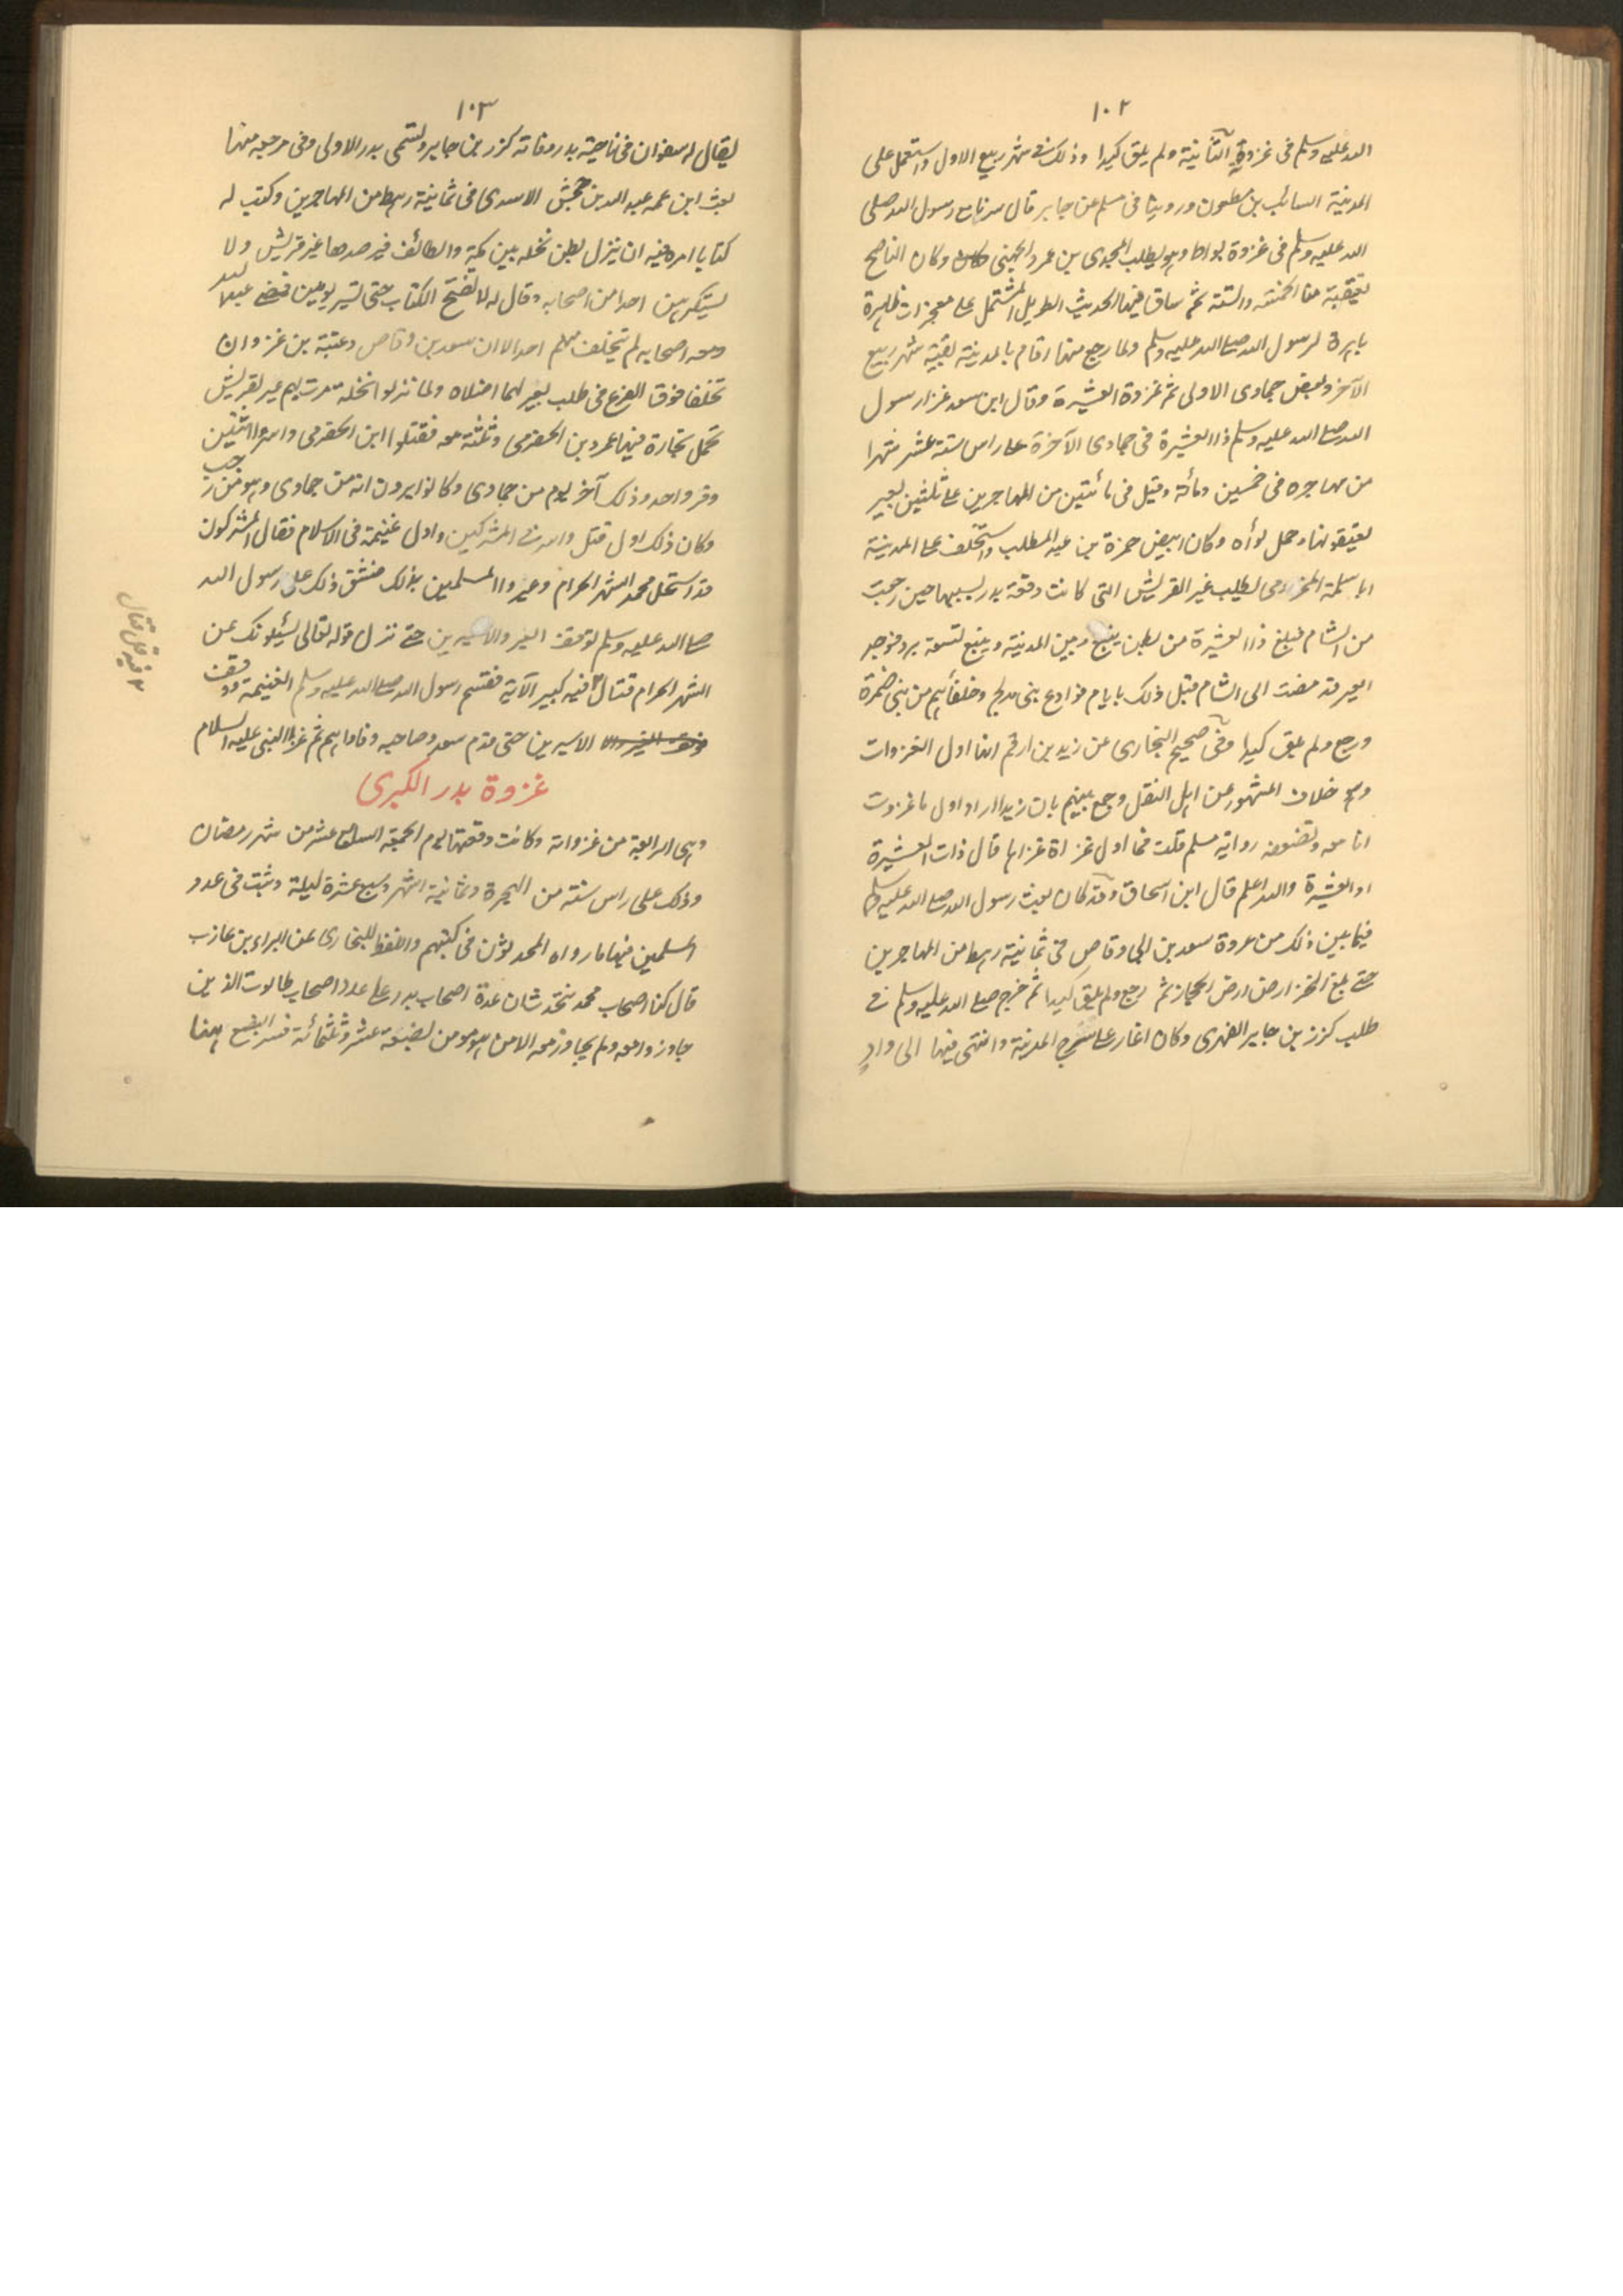 ١٠٢
الله عليه وسلم فى غزوة الثانية ولم يلق كيدا وذلك فى شهر ربيع الاول واستعمل على
المدينة السائب بن مظعون وروينا فى مسلم عن جابر قال سرنا مع رسول الله صلى
الله عليه وسلم فى غزوة بواط وهو يطلب المجدى بن عمرو الجهنى وكان الناضح
يعتقبه منا الخمسة والستة ثم ساق فيها الحديث الطويل المشتمل على معجزات ظاهرة
باهرة لرسول الله صلى الله عليه وسلم ولما رجع منها اقام بالمدينة بقية شهر ربيع
الآخر وبعض جمادى الاولى ثم غزوة العشيرة وقال ابن سعد غزا رسول
الله صلى الله عليه وسلم ذا العشيرة فى جمادى الآخرة على راس ستة عشر شهرا
من مهاجره فى خمسين ومائة وقيل فى مائتين من المهاجرين على ثلثين بعير
يعتقبونها وحمل لوأه وكان ابيض حمزة بن عبد المطلب واستخلف على المدينة
ابا سلمة المخزومى لطلب عير القريش التى كانت وقعة بدر بسببها حين رجعت
من الشام فبلغ ذا العشيرة من بطن ينبع وبين المدينة وينبع تسعة برد فوجد
العير قد مضت الى الشام قبل ذلك بايام فوادع بنى مدلج وحلفائهم من بنى ضمرة
ورجع ولم يلق كيدا وفى صحيح البخارى عن زيد بن ارقم انها اول الغزوات
وهو خلاف المشهور عن اهل النقل وجمع بينهم بان زيدا اراد اول ما غزوت
انا معه وتضعفه رواية مسلم قلت فما اول غزاة غزاها قال ذات العشيرة
او العشيرة والله اعلم قال ابن اسحاق وقد كان بعث رسول الله صلى الله عليه وسلم
فيما بين ذلك من غزوة سعد بن ابى وقاص فى ثمانية رهط من المهاجرين
حتى بلغ الخرار من ارض الحجاز ثم رجع ولم يلق كيدا ثم خرج صلى الله عليه وسلم فى
طلب كرز بن جابر الفهرى وكان اغار على سرح المدينة وانتهى فيها الى وادٍ
١٠٣
يقال له سفوان فى ناحية بدر وفاته كرز بن جابر وتسمى بدر الاولى وفى مرجعه منها
بعث ابن عمه عبد الله بن جحش الاسدى فى ثمانية رهط من المهاجرين وكتب له
كتابا امره فيه ان ينزل بطن نخلة بين مكة والطائف فيرصد ها عير قريش ولا
يستكره من احدا من اصحابه وقال له لا تفتح الكتاب حتى تسير يومين فمضى عبد الله
ومعه اصحابه لم يتخلف منهم احد الا ان سعد بن وقاص وعتبة بن غزوان
تخلفا فوق الفرع فى طلب بعير لهما اضلاه ولما نزلوا نخلة مرت بهم عير لقريش
تحمل تجارة فيها عمرو بن الحضرمى وثلثة معه فقتلوا ابن الحضرمى واسروا اثنين
وفر واحد وذلك آخر يوم من جمادى وكانوا يرون انه من جمادى وهو من رجب
وكان ذلك اول قتل واسر فى المشركين واول غنيمة فى الاسلام فقال المشركون
قد استحل محمد الشهر الحرام وعيروا المسلمين بذلك فشق ذلك على رسول الله
صلى الله عليه وسلم توقف العير والاسيرين حتى نزل قوله تعالى يسئلونك عن
الشهر الحرام قتال فيه كبير الآية فقسم رسول الله صلى الله عليه وسلم الغنيمة ووقف
الاسيرين حتى قدم سعد وصاحبه وفاداهم ثم غزا النبى عليه السلام
غزوة بدر الكبرى
وهى الرابعة من غزواته وكانت وقعتها يوم الجمعة السابع عشر من شهر رمضان
وذلك على راس سنة من الهجرة وثمانية اشهر وسبع عشرة ليلة وثبت فى عدد
المسلمين فيها ما رواه المحدثون فى كتبهم واللفظ للبخارى عن البراء بن عازب
قال كنا اصحاب محمد نتحدث ان عدة اصحاب بدر على عدد اصحاب طالوت الذين
جاوزوا معه ولم يجاوز معه الا من هو مومن بضعة عشر وثلثمائة فسر البضع هنا
فيه قل قتال